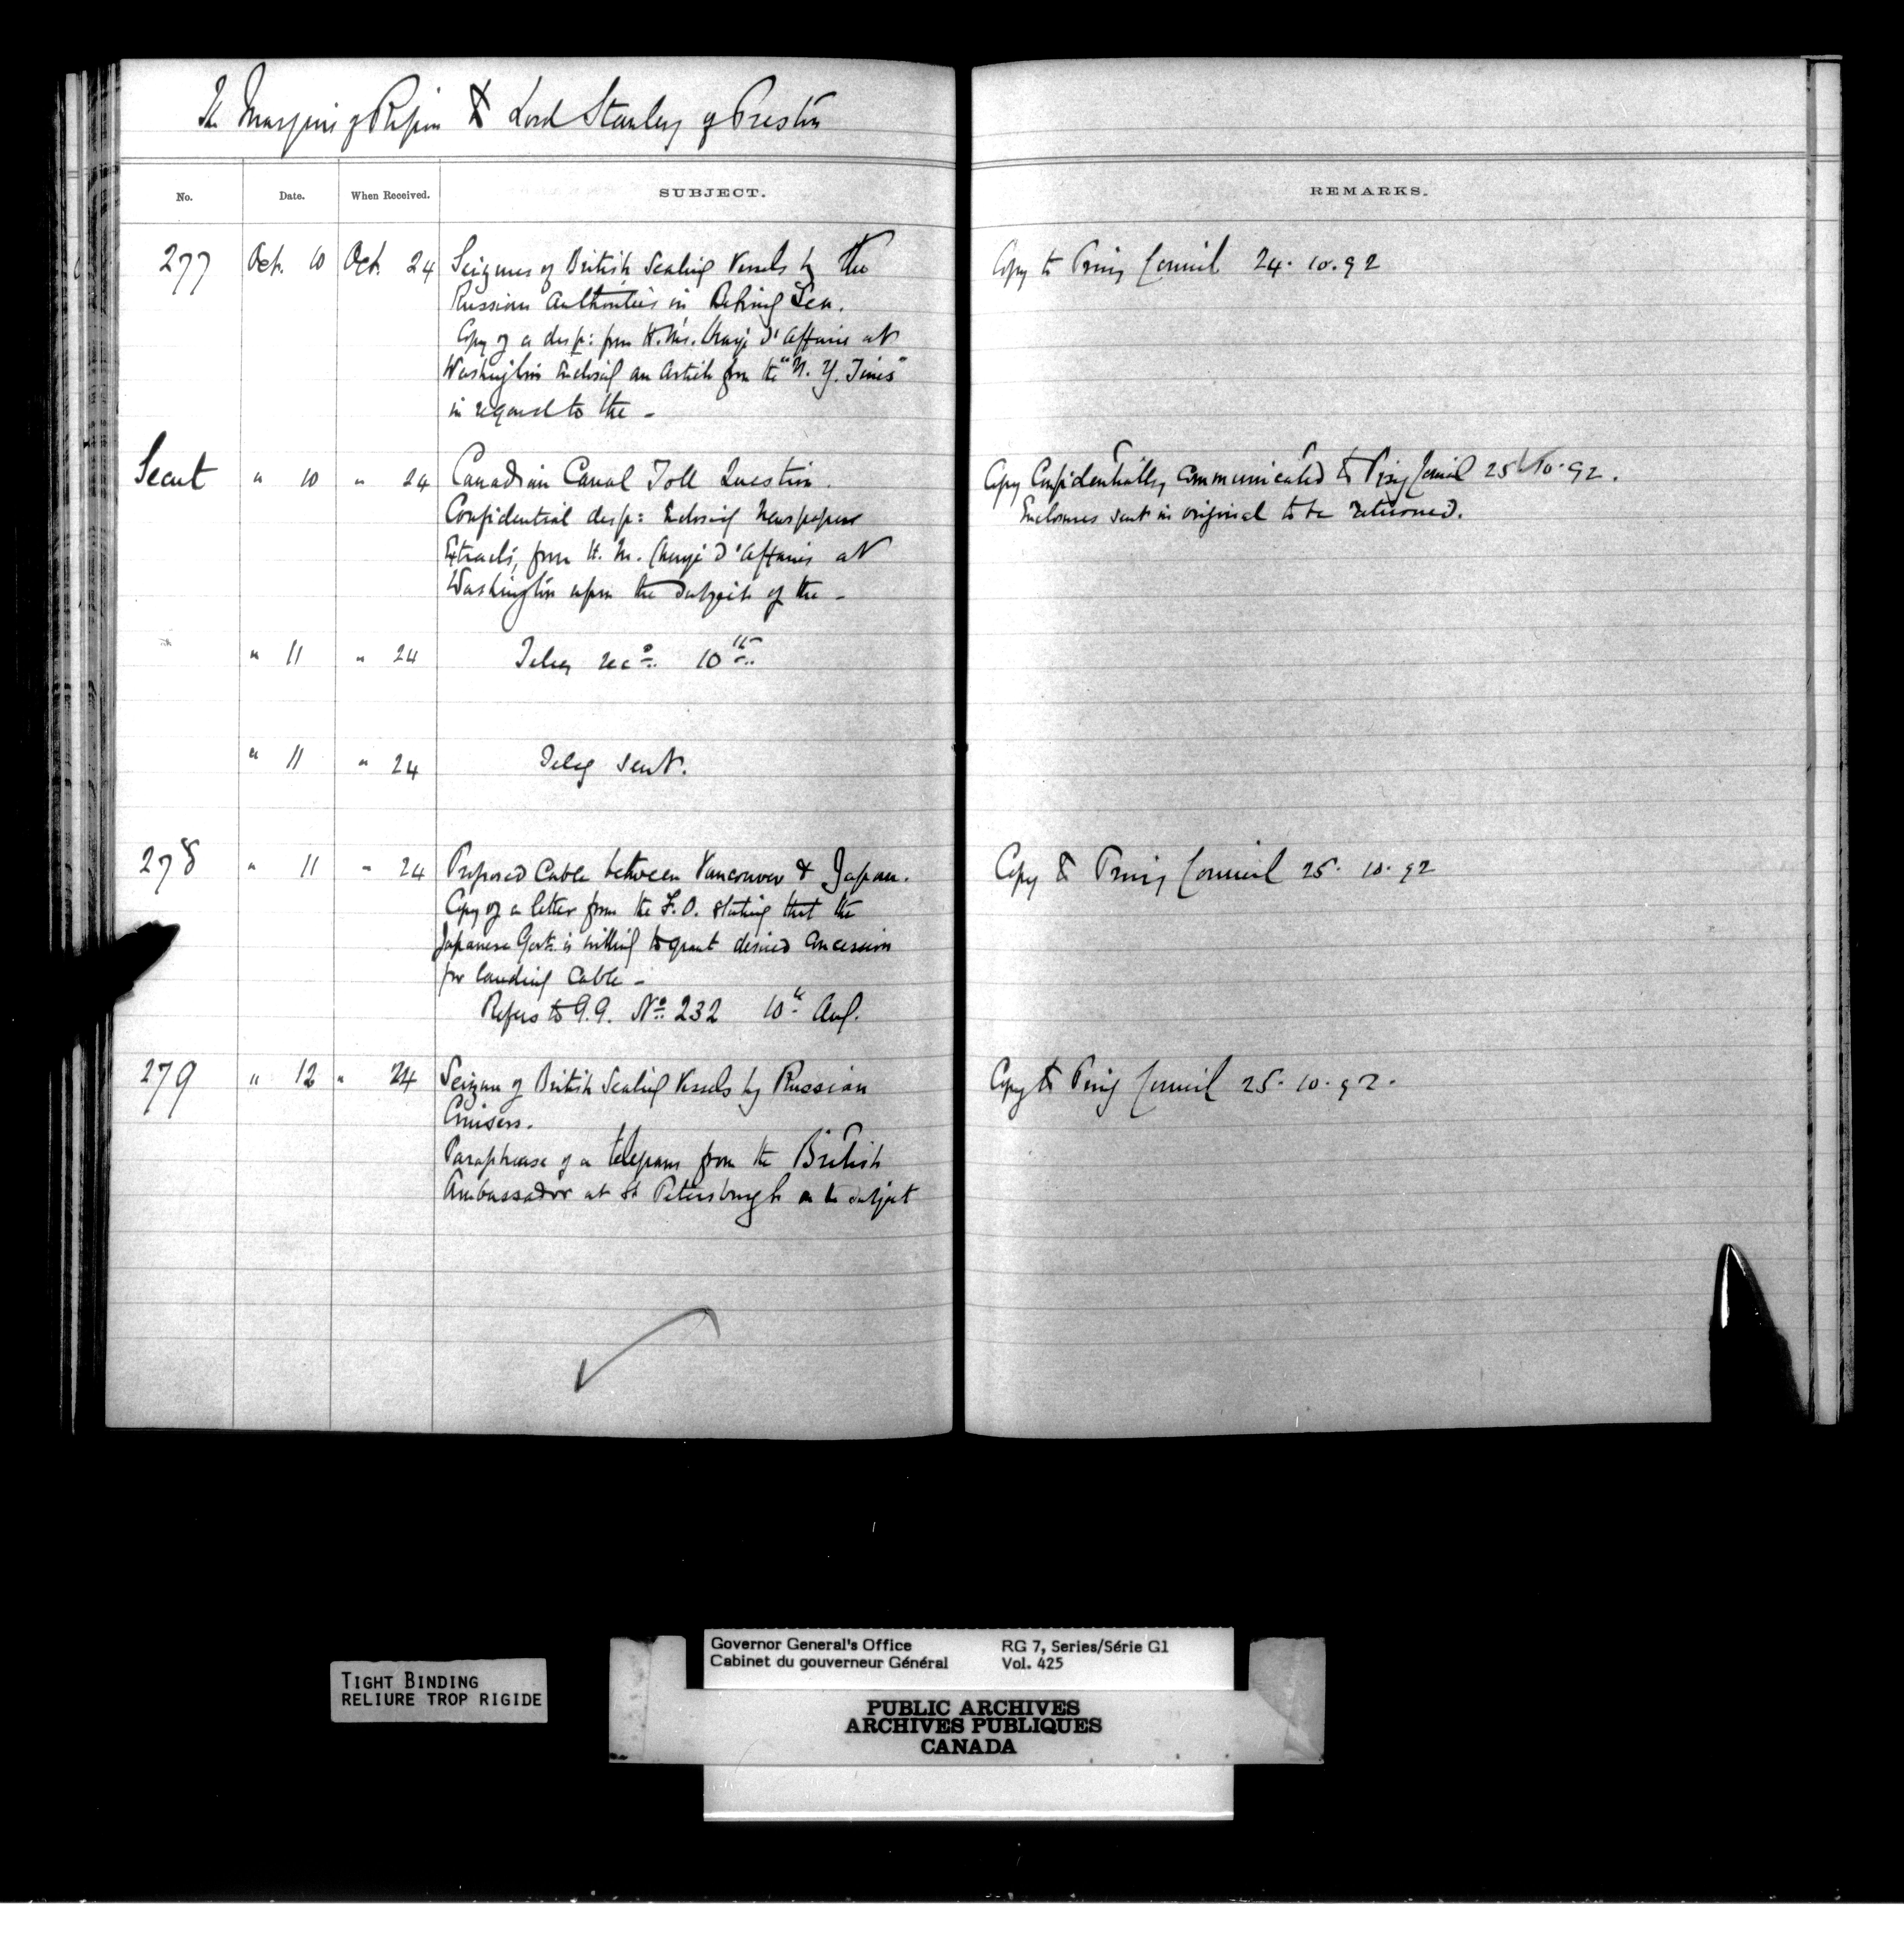 The Marquis of Ripon to Lord Stanley of Preston
No. Date. When Received. SUBJECT. REMARKS.
277 Oct. 10 Oct. 24 Seizures of British Sealing Vessels by the Copy to Privy Council 24. 10. 92
Russian Authorities in Behring Sea.
Copy of a desp: from H.M's. Chargé d'Affaires at
Washington Enclosing an Article from the "N. Y. Times"
in regard to the -
Secret " 10 " 24 Canadian Canal Toll Question. Copy Confidentially communicated to Privy Council 25 10. 92.
Confidential desp: Enclosing Newspaper Enclosures sent in original to be returned.
Extracts, from H. M. Chargé d'Affaires at
Washington upon the subject of the -
" 11 " 24 Teleg recd. 10th
" 11 " 24 Teleg sent.
278 " 11 " 24 Proposed Cable between Vancouver & Japan. Copy to Privy Council 25. 10. 92
Copy of a letter from the F.O. stating that the
Japanese Govt. is willing to grant desired concession
for landing Cable -
Refers to G.G. No. 232 10th Aug.
279 " 12 " 24 Seizure of British Sealing Vessels by Russian Copy to Privy Council 25. 10. 92.
Cruisers.
Paraphrase of a telegram from the British
Ambassador at St Petersburgh on the subject
Governor General's Office RG 7, Series/Série G1
Cabinet du gouverneur Général Vol. 425
TIGHT BINDING
RELIURE TROP RIGIDE
PUBLIC ARCHIVES
ARCHIVES PUBLIQUES
CANADA